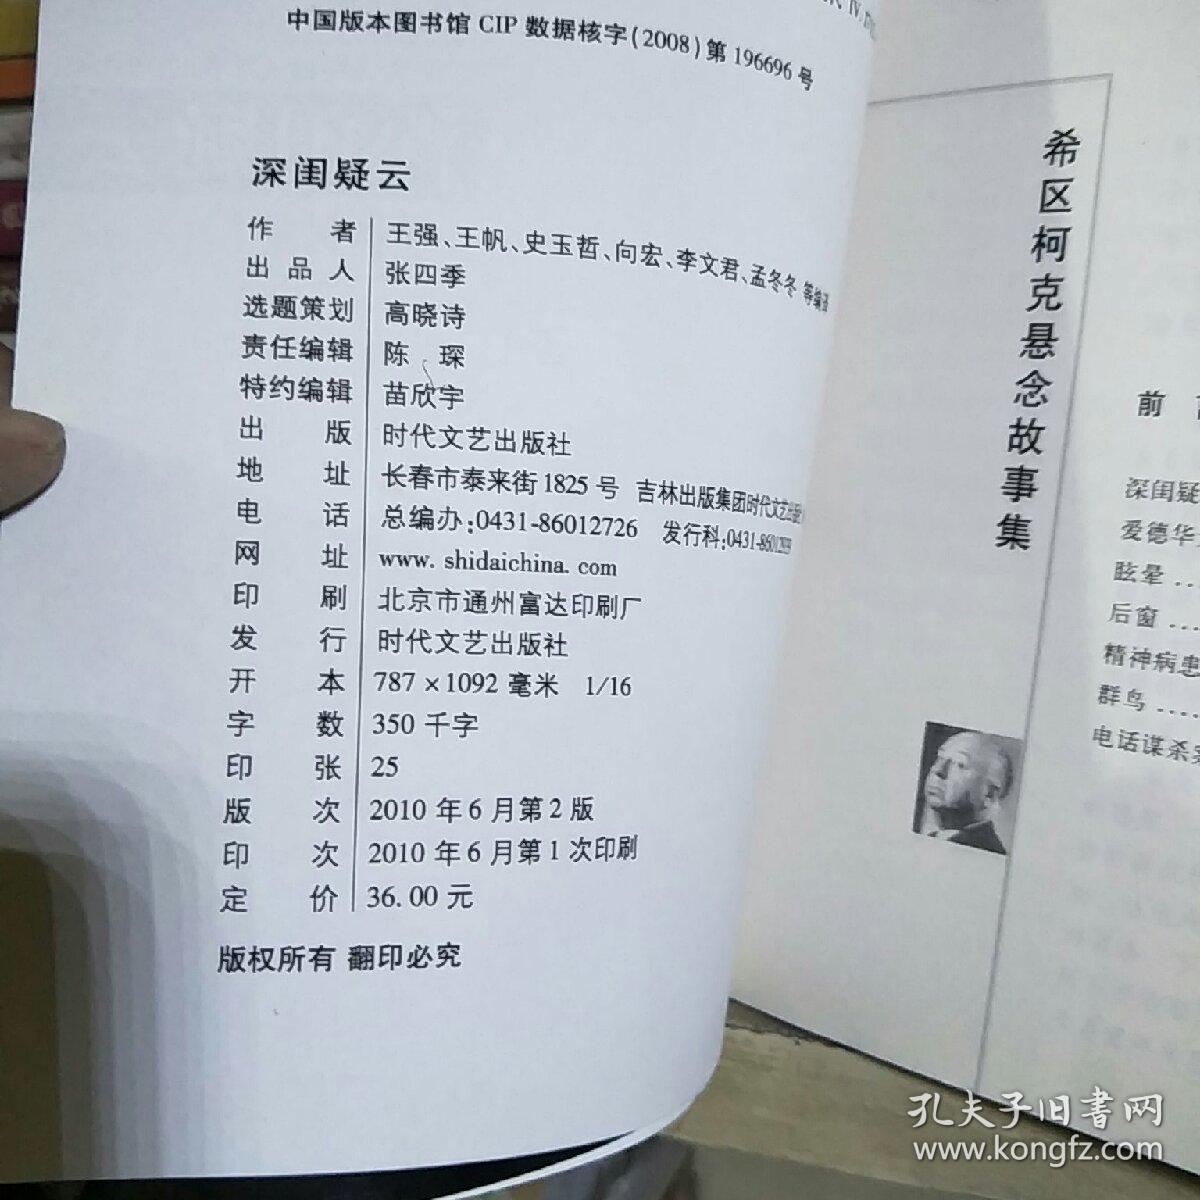 中国版本图书馆 CIP 数据核字(2008)第 196696 号
深闺疑云
作 者 王强、王帆、史玉哲、向宏、李文君、孟冬冬 等编译
出 品 人 张四季
选题策划 高晓诗
责任编辑 陈 琛
特约编辑 苗欣宇
出 版 时代文艺出版社
地 址 长春市泰来街1825 号 吉林出版集团时代文艺出版
电 话 总编办:0431-86012726 发行科:0431-
网 址 www. shidaichina. com
印 刷 北京市通州富达印刷厂
发 行 时代文艺出版社
开 本 787×1092 毫米 1/16
字 数 350 千字
印 张 25
版 次 2010 年 6 月第 2 版
印 次 2010 年 6 月第 1 次印刷
定 价 36.00 元
版权所有 翻印必究
希区柯克悬念故事集
前
深闺疑
爱德华
眩晕 ...
后窗 ....
精神病患
群鸟 ....
电话谋杀
孔夫子旧书网
www.kongfz.com